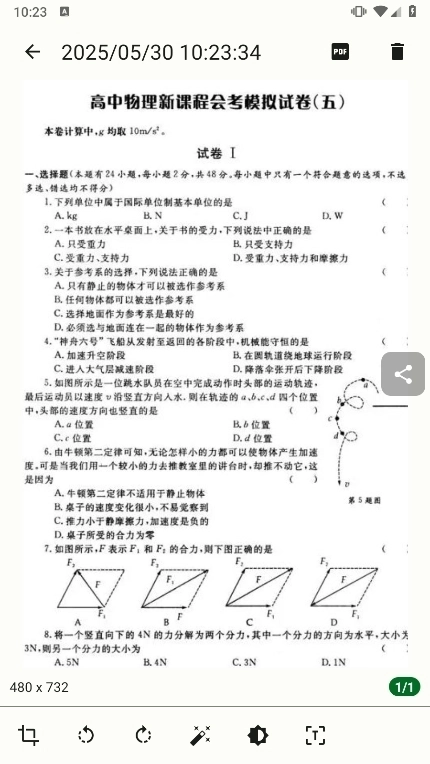 10:23
2025/05/30 10:23:34
PDF
高中物理新课程会考模拟试卷(五)
本卷计算中,g 均取 10m/s²。
试卷 I
一、选择题(本题有 24 小题,每小题 2 分,共 48 分。每小题中只有一个符合题意的选项,不选、
多选、错选均不得分)
1. 下列单位中属于国际单位制基本单位的是 (
A. kg B. N C. J D. W
2. 一本书放在水平桌面上,关于书的受力,下列说法中正确的是 (
A. 只受重力 B. 只受支持力
C. 受重力、支持力 D. 受重力、支持力和摩擦力
3. 关于参考系的选择,下列说法正确的是 (
A. 只有静止的物体才可以被选作参考系
B. 任何物体都可以被选作参考系
C. 选择地面作为参考系是最好的
D. 必须选与地面连在一起的物体作为参考系
4. “神舟六号”飞船从发射至返回的各阶段中,机械能守恒的是 (
A. 加速升空阶段 B. 在圆轨道绕地球运行阶段
C. 进入大气层减速阶段 D. 降落伞张开后下降阶段
5. 如图所示是一位跳水队员在空中完成动作时头部的运动轨迹,
最后运动员以速度 v 沿竖直方向入水. 则在轨迹的 a、b、c、d 四个位置
中,头部的速度方向也竖直的是 ( )
A. a 位置 B. b 位置
C. c 位置 D. d 位置
a
b
c
d
v
第 5 题图
6. 由牛顿第二定律可知,无论怎样小的力都可以使物体产生加速
度,可是当我们用一个较小的力去推教室里的讲台时,却推不动它,这
是因为 ( )
A. 牛顿第二定律不适用于静止物体
B. 桌子的速度变化很小,不易觉察到
C. 推力小于静摩擦力,加速度是负的
D. 桌子所受的合力为零
7. 如图所示,F 表示 F₁ 和 F₂ 的合力,则下图正确的是 (
F₂ F₂ F₂ F₂
F F₁ F F
F₁ F F₁ F₁
A B C D
8. 将一个竖直向下的 4N 的力分解为两个分力,其中一个分力的方向为水平,大小为
3N,则另一个分力的大小为 (
A. 5N B. 4N C. 3N D. 1N
480 x 732
1/1
T